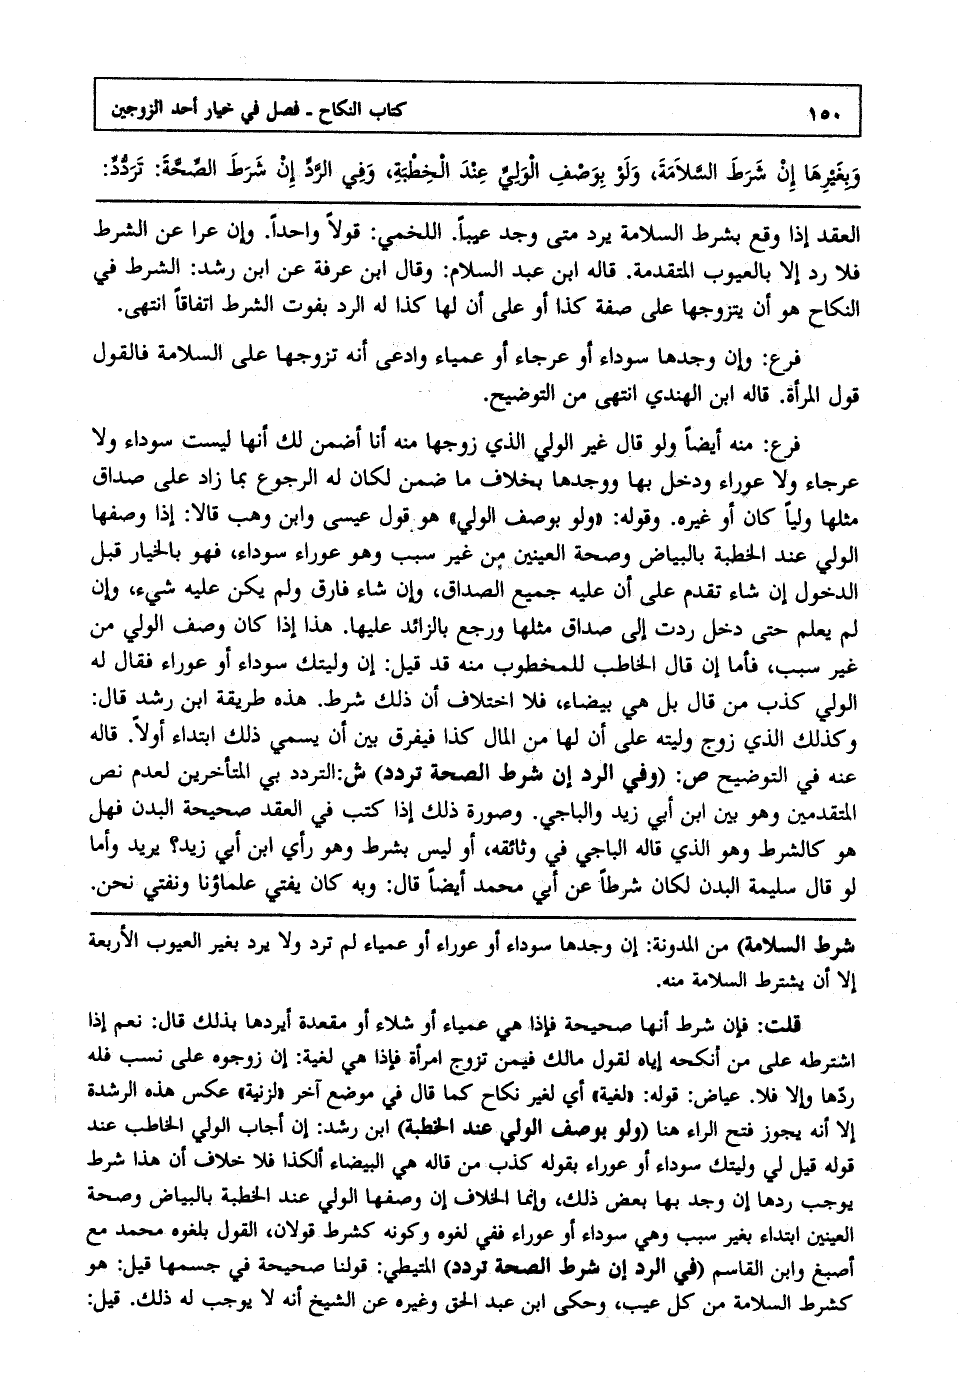 ١٥٠ كتاب النكاح ـ فصل في خيار أحد الزوجين
وَبِغَيْرِهَا إِنْ شَرَطَ السَّلَامَةَ، وَلَوْ بِوَصْفِ الْوَلِيِّ عِنْدَ الْخِطْبَةِ، وَفِي الرَّدِّ إِنْ شَرَطَ الصِّحَّةَ: تَرَدُّدٌ:
العقد إذا وقع بشرط السلامة يرد متى وجد عيباً. اللخمي: قولاً واحداً. وإن عرا عن الشرط
فلا رد إلا بالعيوب المتقدمة. قاله ابن عبد السلام: وقال ابن عرفة عن ابن رشد: الشرط في
النكاح هو أن يتزوجها على صفة كذا أو على أن لها كذا له الرد بفوت الشرط اتفاقاً انتهى.
فرع: وإن وجدها سوداء أو عرجاء أو عمياء وادعى أنه تزوجها على السلامة فالقول
قول المرأة. قاله ابن الهندي انتهى من التوضيح.
فرع: منه أيضاً ولو قال غير الولي الذي زوجها منه أنا أضمن لك أنها ليست سوداء ولا
عرجاء ولا عوراء ودخل بها ووجدها بخلاف ما ضمن لكان له الرجوع بما زاد على صداق
مثلها ولياً كان أو غيره. وقوله: «ولو بوصف الولي» هو قول عيسى وابن وهب قالا: إذا وصفها
الولي عند الخطبة بالبياض وصحة العينين من غير سبب وهو عوراء سوداء، فهو بالخيار قبل
الدخول إن شاء تقدم على أن عليه جميع الصداق، وإن شاء فارق ولم يكن عليه شيء، وإن
لم يعلم حتى دخل ردت إلى صداق مثلها ورجع بالزائد عليها. هذا إذا كان وصف الولي من
غير سبب، فأما إن قال الخاطب للمخطوب منه قد قيل: إن وليتك سوداء أو عوراء فقال له
الولي كذب من قال بل هي بيضاء، فلا اختلاف أن ذلك شرط. هذه طريقة ابن رشد قال:
وكذلك الذي زوج وليته على أن لها من المال كذا فيفرق بين أن يسمي ذلك ابتداء أولاً. قاله
عنه في التوضيح ص: (وفي الرد إن شرط الصحة تردد) ش:التردد بي المتأخرين لعدم نص
المتقدمين وهو بين ابن أبي زيد والباجي. وصورة ذلك إذا كتب في العقد صحيحة البدن فهل
هو كالشرط وهو الذي قاله الباجي في وثائقه، أو ليس بشرط وهو رأي ابن أبي زيد؟ يريد وأما
لو قال سليمة البدن لكان شرطاً عن أبي محمد أيضاً قال: وبه كان يفتي علماؤنا ونفتي نحن.
شرط السلامة) من المدونة: إن وجدها سوداء أو عوراء أو عمياء لم ترد ولا يرد بغير العيوب الأربعة
إلا أن يشترط السلامة منه.
قلت: فإن شرط أنها صحيحة فإذا هي عمياء أو شلاء أو مقعدة أيردها بذلك قال: نعم إذا
اشترطه على من أنكحه إياه لقول مالك فيمن تزوج امرأة فإذا هي لغية: إن زوجوه على نسب فله
ردّها وإلا فلا. عياض: قوله: «لغية» أي لغير نكاح كما قال في موضع آخر «لزنية» عكس هذه الرشدة
إلا أنه يجوز فتح الراء هنا (ولو بوصف الولي عند الخطبة) ابن رشد: إن أجاب الولي الخاطب عند
قوله قيل لي وليتك سوداء أو عوراء بقوله كذب من قاله هي البيضاء ألكذا فلا خلاف أن هذا شرط
يوجب ردها إن وجد بها بعض ذلك، وإنما الخلاف إن وصفها الولي عند الخطبة بالبياض وصحة
العينين ابتداء بغير سبب وهي سوداء أو عوراء ففي لغوه وكونه كشرط قولان، القول بلغوه محمد مع
أصبغ وابن القاسم (في الرد إن شرط الصحة تردد) المتيطي: قولنا صحيحة في جسمها قيل: هو
كشرط السلامة من كل عيب، وحكى ابن عبد الحق وغيره عن الشيخ أنه لا يوجب له ذلك. قيل: